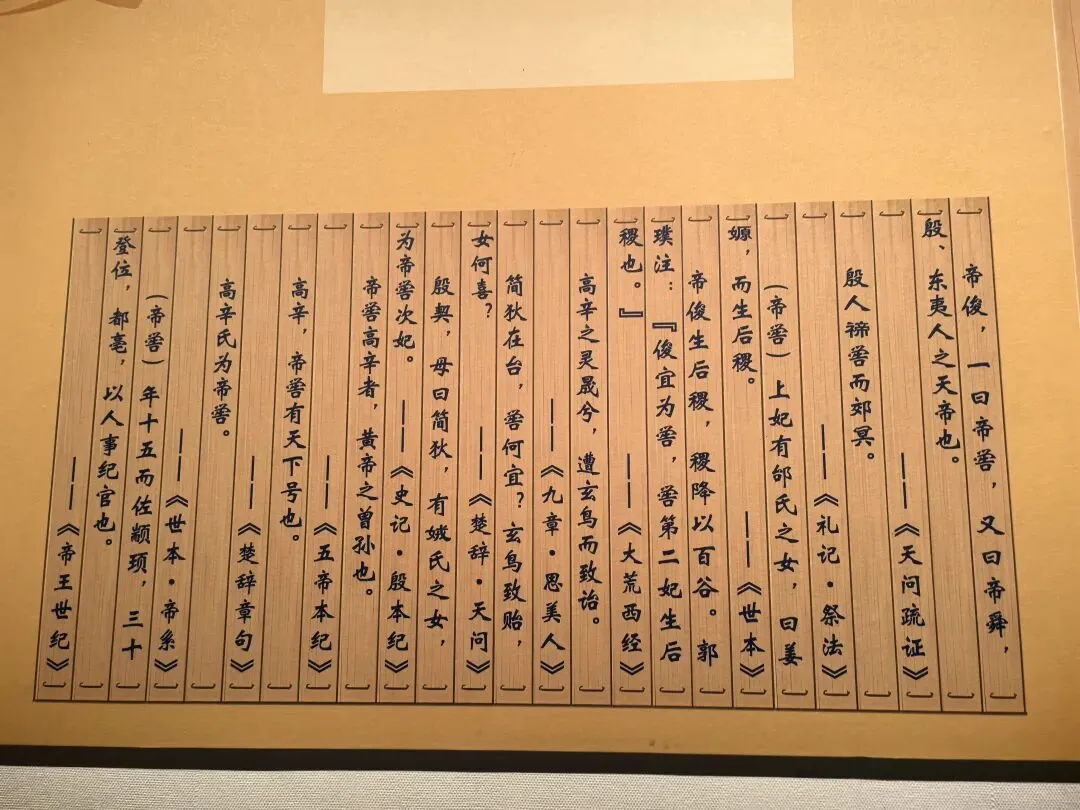 帝俊，一曰帝喾，又曰帝舜，
殷、东夷人之天帝也。
——《天问疏证》
殷人禘喾而郊冥。
——《礼记·祭法》
（帝喾）上妃有邰氏之女，曰姜
嫄，而生后稷。
——《世本》
帝俊生后稷，稷降以百谷。郭
璞注：『俊宜为喾，喾第二妃生后
稷也。』
——《大荒西经》
高辛之灵晟兮，遭玄鸟而致诒。
——《九章·思美人》
简狄在台，喾何宜？玄鸟致贻，
女何喜？
——《楚辞·天问》
殷契，母曰简狄，有娀氏之女，
为帝喾次妃。
——《史记·殷本纪》
帝喾高辛者，黄帝之曾孙也。
——《五帝本纪》
高辛，帝喾有天下号也。
——《楚辞章句》
高辛氏为帝喾。
——《世本·帝系》
（帝喾）年十五而佐颛顼，三十
登位，都亳，以人事纪官也。
——《帝王世纪》